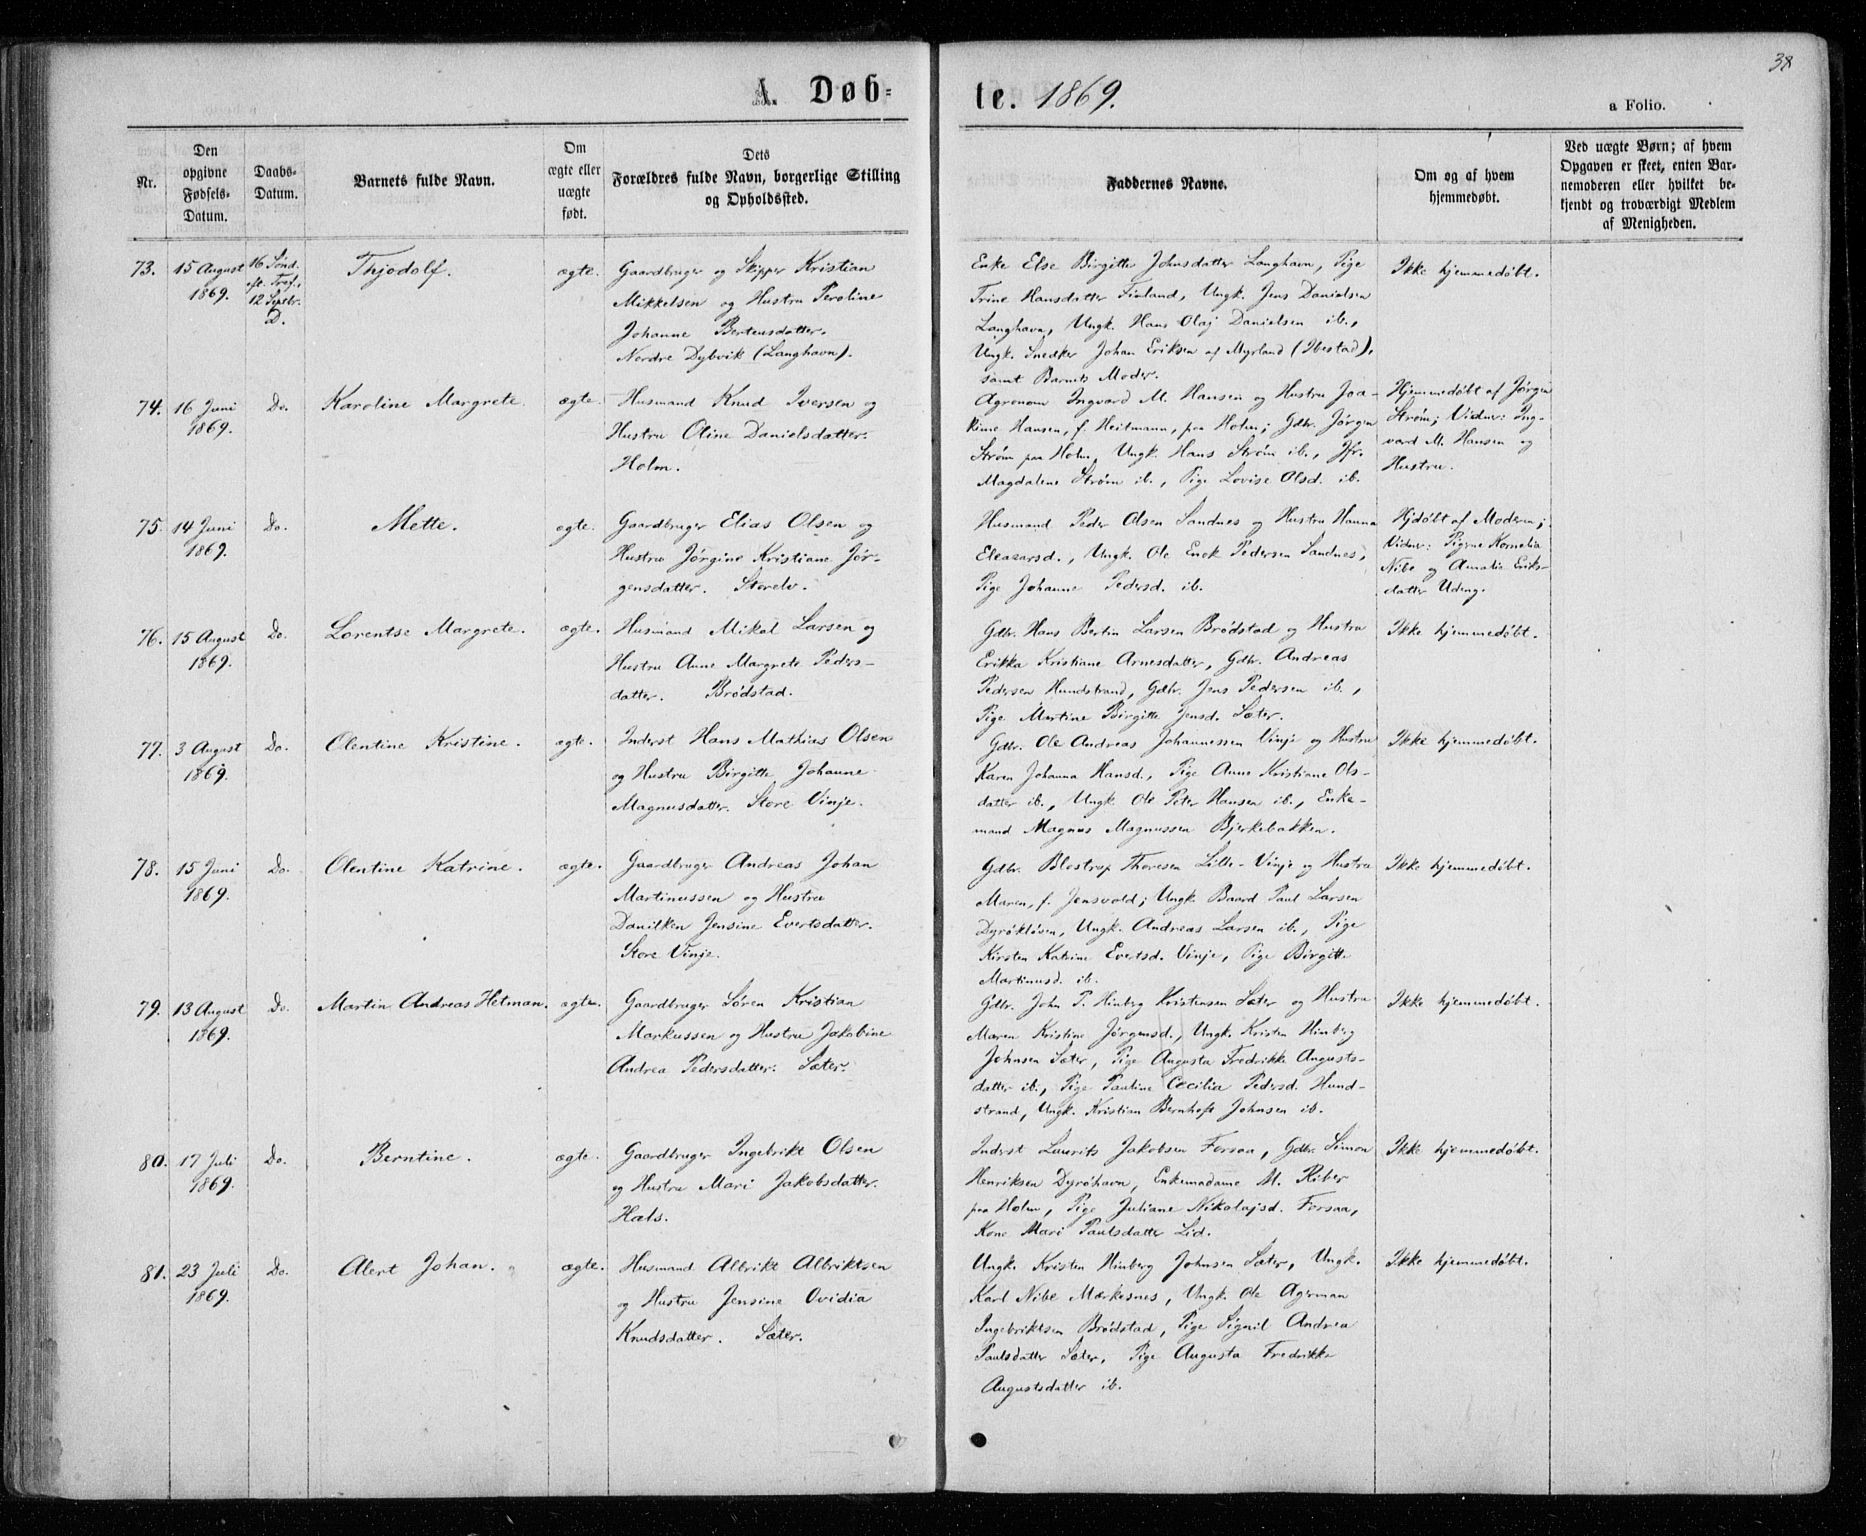 38
A. Døb-
te. 1869.
a Folio.
Nr.
Den
opgivne
Fødsels-
Datum.
Daabs-
Datum.
Barnets fulde Navn.
Om
ægte eller
uægte
født.
Dets
Forældres fulde Navn, borgerlige Stilling
og Opholdssted.
Faddernes Navne.
Om og af hvem
hjemmedøbt.
Ved uægte Børn; af hvem
Opgaven er skeet, enten Bar-
nemoderen eller hvilket be-
kjendt og troværdigt Medlem
af Menigheden.
73.
15 August
1869.
16 Sönd.
eft. Tref.,
12 Septbr.
D.
Thjodolf.
ægte.
Gaardbruger og Skipper Kristian
Mikkelsen og Hustru Peroline
Johanne Bertensdatter.
Nordre Dybvik (Langhavn).
Enke Else Birgitte Johnsdatter Langhavn, Pige
Trine Hansdatter Finland, Ungk. Jens Danielsen
Langhavn, Ungk. Hans Olaj Danielsen ib.,
Ungk. Snedker Johan Eriksen af Myrland (Ibestad),
samt Barnets Moder.
Ikke hjemmedøbt.
74.
16 Juni
1869.
Do.
Karoline Margrete.
ægte.
Husmand Knud Iversen og
Hustru Oline Danielsdatter.
Holm.
Agronom Ingvard M. Hansen og Hustru Joa-
kime Hansen, f. Heitmann, paa Holm; Gdbr. Jørgen
Strøm paa Holm, Ungk. Hans Strøm ib., Jfr.
Magdalene Strøm ib., Pige Lovise Olsd. ib.
Hjemmedøbt af Jørgen
Strøm; Vidner: Ing-
vard M. Hansen og
Hustru.
75.
14 Juni
1869.
Do.
Mette.
ægte.
Gaardbruger Elias Olsen og
Hustru Jørgine Kristiane Jør-
gensdatter. Storelv.
Husmand Peder Olsen Sandnes og Hustru Hanna
Eleazarsd., Ungk. Ole Enok Pedersen Sandnes,
Pige Johanne Pedersd. ib.
Hjdøbt af Moderen;
Vidner: Pigerne Kornelia
Nibe og Amalia Eriks-
datter Udeng.
76.
15 August
1869.
Do.
Lorentse Margrete.
ægte.
Husmand Mikal Larsen og
Hustru Anne Margrete Peders-
datter. Brödstad.
Gdbr. Hans Bertin Larsen Brödstad og Hustru
Erikka Kristiane Arnesdatter, Gdbr. Andreas
Pedersen Hundstrand, Gdbr. Jens Pedersen ib.,
Pige Martine Birgitte Jensd. Sæter.
Ikke hjemmedøbt.
77.
3 August
1869.
Do.
Olentine Kristine.
ægte.
Inderst Hans Mathias Olsen
og Hustru Birgitte Johanne
Magnusdatter. Store Vinje.
Gdbr. Ole Andreas Johannessen Vinje og Hustru
Karen Johanna Hansd., Pige Anne Kristiane Ols-
datter ib., Ungk. Ole Peter Hansen ib., Enke-
mand Magnus Magnussen Bjerkebakken.
Ikke hjemmedøbt.
78.
15 Juni
1869.
Do.
Olentine Katrine.
ægte.
Gaardbruger Andreas Johan
Martinussen og Hustru
Danilken Jensine Evertsdatter.
Store Vinje.
Gdbr. Blostrup Thoresen Lille-Vinje og Hustru
Maren, f. Jensvold; Ungk. Baard Paul Larsen
Dyröklöven, Ungk. Andreas Larsen ib., Pige
Kirsten Katrine Evertsd. Vinje, Pige Birgitte
Martinusd. ib.
Ikke hjemmedøbt.
79.
13 August
1869.
Do.
Martin Andreas Hetman.
ægte.
Gaardbruger Sören Kristian
Markussen og Hustru Jakobine
Andrea Pedersdatter. Sæter.
Gdbr. John P. Hinberg Kristensen Sæter og Hustru
Maren Kristine Jørgensd., Ungk. Kristen Hinberg
Johnsen Sæter, Pige Augusta Fredrikke Augusts-
datter ib., Pige Pauline Cecilia Pedersd. Hund-
strand, Ungk. Kristian Bernhoft Johnsen ib.
Ikke hjemmedøbt.
80.
17 Juli
1869.
Do.
Berntine.
ægte.
Gaardbruger Ingebrikt Olsen
og Hustru Mari Jakobsdatter.
Hals.
Inderst Laurits Jakobsen Forsaa, Gdbr. Simon
Henriksen Dyröhavn, Enkemadame M. Riber
paa Holm, Pige Juliane Nikolajsd. Forsaa,
Kone Mari Paulsdatter Lid.
Ikke hjemmedøbt.
81.
23 Juli
1869.
Do.
Alert Johan.
ægte.
Husmand Albrikt Albriktsen
og Hustru Jensine Ovidia
Knudsdatter. Sæter.
Ungk. Kristen Hinberg Johnsen Sæter, Ungk.
Karl Nibe Mærkesnes, Ungk. Ole Agerman
Ingebriktsen Brödstad, Pige Signil Andrea
Paulsdatter Sæter, Pige Augusta Fredrikke
Augustsdatter ib.
Ikke hjemmedøbt.